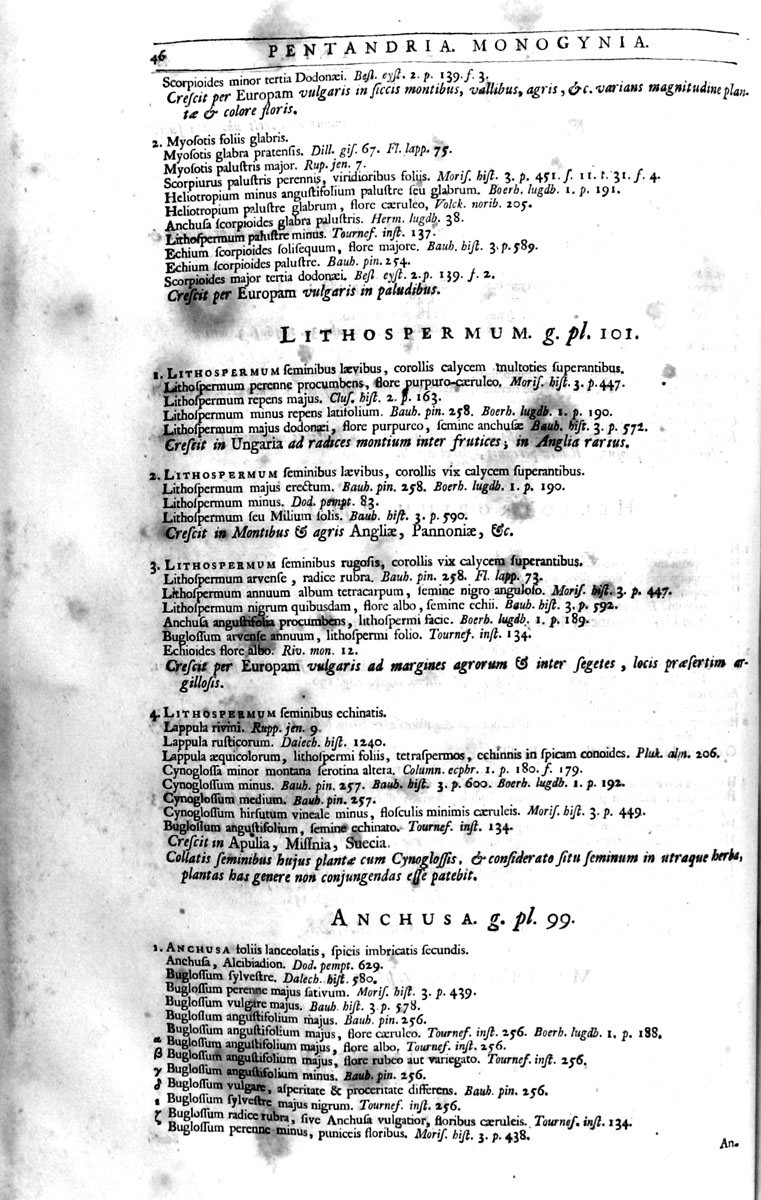 46 PENTANDRIA. MONOGYNIA.
Scorpioides minor tertia Dodonæi. Beſl. eyſt. 2. p. 139. f. 3.
Creſcit per Europam vulgaris in ſiccis montibus, vallibus, agris, &c. varians magnitudine plan-
tæ & colore floris.
2. Myoſotis foliis glabris.
Myoſotis glabra pratenſis. Dill. giſ. 67. Fl. lapp. 75.
Myoſotis paluſtris major. Rup. jen. 7.
Scorpiurus paluſtris perennis, viridioribus foliis. Moriſ. hiſt. 3. p. 451. ſ. 11. t. 31. f. 4.
Heliotropium minus anguſtifolium paluſtre ſeu glabrum. Boerh. lugdb. 1. p. 191.
Heliotropium paluſtre glabrum, flore cæruleo, Volck. norib. 205.
Anchuſa ſcorpioides glabra paluſtris. Herm. lugdb. 38.
Lithoſpermum paluſtre minus. Tourneſ. inſt. 137.
Echium ſcorpioides ſoliſequum, flore majore. Bauh. hiſt. 3. p. 589.
Echium ſcorpioides paluſtre. Bauh. pin. 254.
Scorpioides major tertia dodonæi. Beſl eyſt. 2. p. 139. f. 2.
Creſcit per Europam vulgaris in paludibus.
LITHOSPERMUM. g. pl. 101.
1. LITHOSPERMUM ſeminibus lævibus, corollis calycem multoties ſuperantibus.
Lithoſpermum perenne procumbens, flore purpuro-cæruleo. Moriſ. hiſt. 3. p. 447.
Lithoſpermum repens majus. Cluſ. hiſt. 2. p. 163.
Lithoſpermum minus repens latifolium. Bauh. pin. 258. Boerh. lugdb. 1. p. 190.
Lithoſpermum majus dodonæi, flore purpureo, ſemine anchuſæ Bauh. hiſt. 3. p. 572.
Creſcit in Ungaria ad radices montium inter frutices; in Anglia rarius.
2. LITHOSPERMUM ſeminibus lævibus, corollis vix calycem ſuperantibus.
Lithoſpermum majus erectum. Bauh. pin. 258. Boerh. lugdb. 1. p. 190.
Lithoſpermum minus. Dod. pempt. 83.
Lithoſpermum ſeu Milium ſolis. Bauh. hiſt. 3. p. 590.
Creſcit in Montibus & agris Angliæ, Pannoniæ, &c.
3. LITHOSPERMUM ſeminibus rugoſis, corollis vix calycem ſuperantibus.
Lithoſpermum arvenſe, radice rubra. Bauh. pin. 258. Fl. lapp. 73.
Lithoſpermum annuum album tetracarpum, ſemine nigro anguloſo. Moriſ. hiſt. 3. p. 447.
Lithoſpermum nigrum quibusdam, flore albo, ſemine echii. Bauh. hiſt. 3. p. 592.
Anchuſa anguſtifolia procumbens, lithoſpermi facie. Boerh. lugdb. 1. p. 189.
Bugloſſum arvenſe annuum, lithoſpermi folio. Tourneſ. inſt. 134.
Echioides flore albo. Riv. mon. 12.
Creſcit per Europam vulgaris ad margines agrorum & inter ſegetes, locis præſertim ar-
gilloſis.
4. LITHOSPERMUM ſeminibus echinatis.
Lappula rivini. Rupp. jen. 9.
Lappula ruſticorum. Dalech. hiſt. 1240.
Lappula æquicolorum, lithoſpermi foliis, tetraſpermos, echinnis in ſpicam conoides. Pluk. alm. 206.
Cynogloſſa minor montana ſerotina altera. Column. ecphr. 1. p. 180. f. 179.
Cynogloſſum minus. Bauh. pin. 257. Bauh. hiſt. 3. p. 600. Boerh. lugdb. 1. p. 192.
Cynogloſſum medium. Bauh. pin. 257.
Cynogloſſum hirſutum vineale minus, floſculis minimis cæruleis. Moriſ. hiſt. 3. p. 449.
Bugloſſum anguſtifolium, ſemine echinato. Tourneſ. inſt. 134.
Creſcit in Apulia, Miſnia, Suecia.
Collatis ſeminibus hujus plantæ cum Cynogloſſis, & conſiderato ſitu ſeminum in utraque herba,
plantas has genere non conjungendas eſſe patebit.
ANCHUSA. g. pl. 99.
1. ANCHUSA foliis lanceolatis, ſpicis imbricatis ſecundis.
Anchuſa, Alcibiadion. Dod. pempt. 629.
Bugloſſum ſylveſtre. Dalech. hiſt. 580.
Bugloſſum perenne majus ſativum. Moriſ. hiſt. 3. p. 439.
Bugloſſum vulgare majus. Bauh. hiſt. 3. p. 578.
Bugloſſum anguſtifolium majus. Bauh. pin. 256.
Bugloſſum anguſtifolium majus, flore cæruleo. Tourneſ. inſt. 256. Boerh. lugdb. 1. p. 188.
α Bugloſſum anguſtifolium majus, flore albo. Tourneſ. inſt. 256.
β Bugloſſum anguſtifolium majus, flore rubeo aut variegato. Tourneſ. inſt. 256.
γ Bugloſſum anguſtifolium minus. Bauh. pin. 256.
δ Bugloſſum vulgare, aſperitate & proceritate differens. Bauh. pin. 256.
ε Bugloſſum ſylveſtre majus nigrum. Tourneſ. inſt. 256.
ζ Bugloſſum radice rubra, ſive Anchuſa vulgatior, floribus cæruleis. Tourneſ. inſt. 134.
Bugloſſum perenne minus, puniceis floribus. Moriſ. hiſt. 3. p. 438.
An-